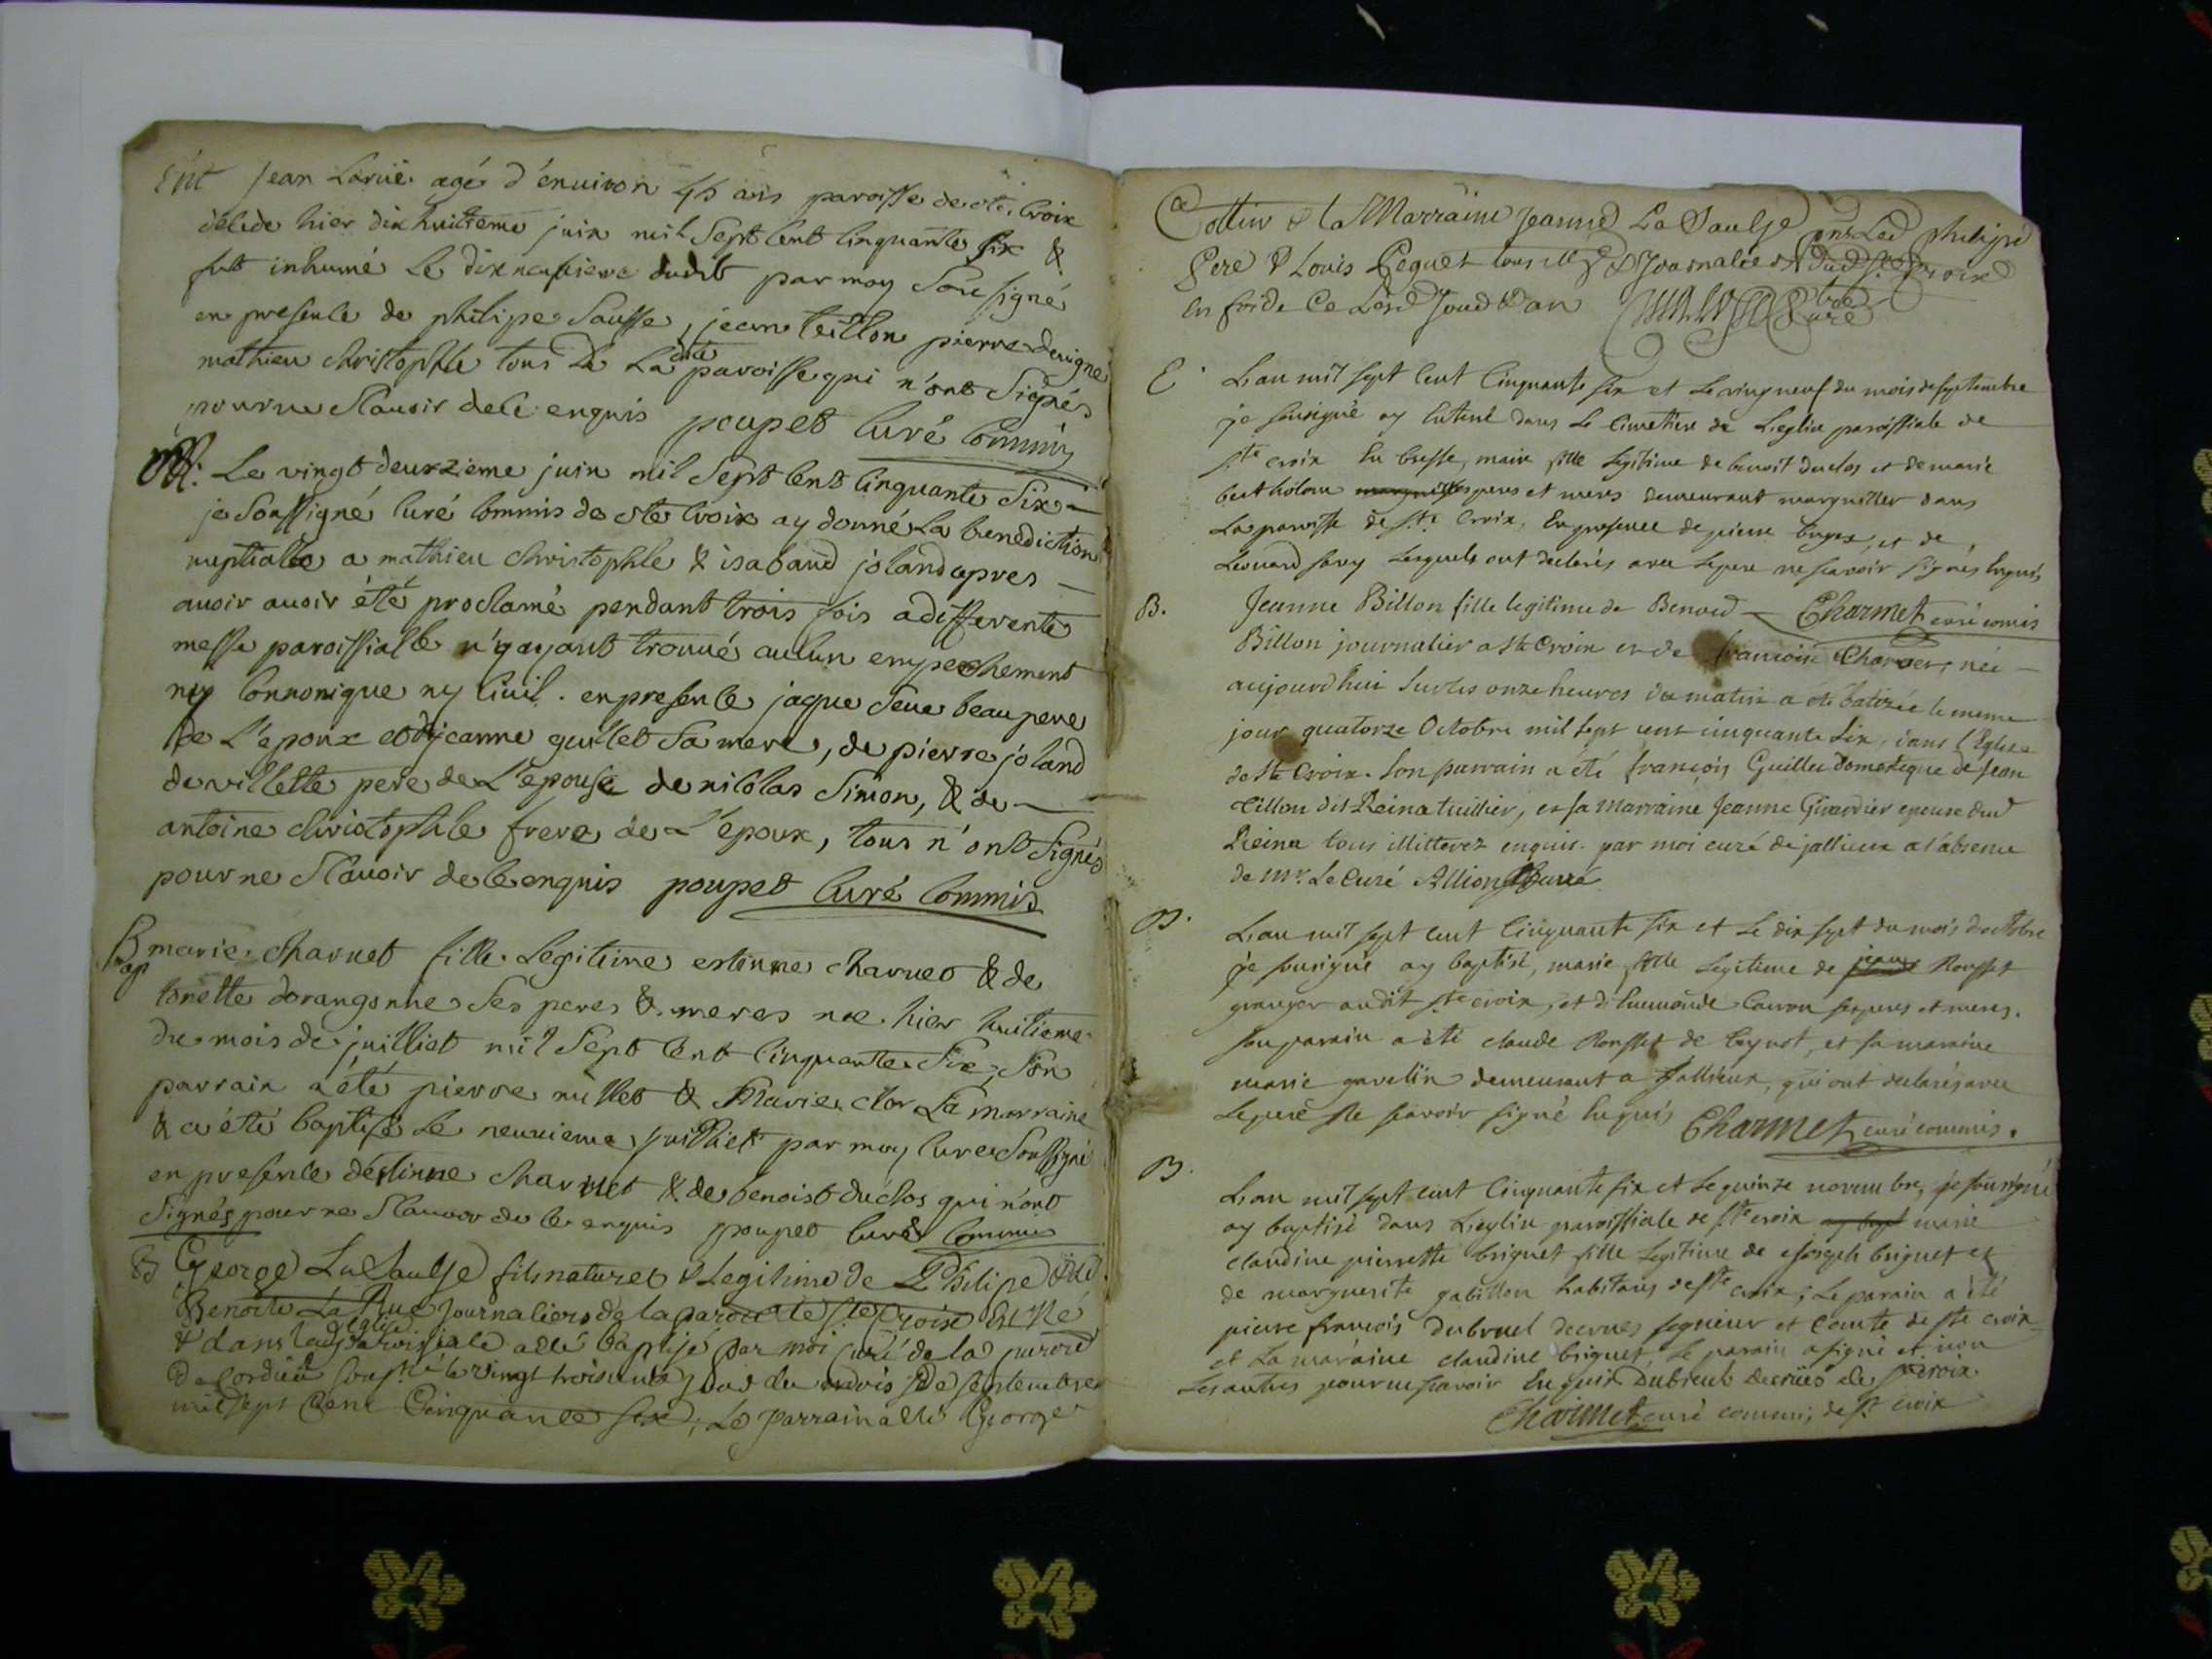 Ent Jean Larüe agé d'énuiron 45 ans paroisse de ste. Croix
décede hier dix huitieme juin mil Sept Cent Cinquante six &
fut inhumé Le dix neufvieme dudit par moy Sousigné
en presence de philipe Sausse, jean teillon pierre
mathieu christophle tous De La dite paroisse qui n'ont Signés
pour ne Scauoir de ce enquis poupet Curé Commis
M. Le vingt deuxzieme juin mil Sept Cent Cinquante Six
je Soussigné Curé Commis de ste Croix ay donné La benediction
nuptialle a mathieu christophle & isabaud joland apres
auoir auoir été proclamé pendant trois fois a differente
messe paroissialle n'y ayant trouué aucun empechement
ny Cannonique ny Ciuil. en presence jaque Seue beau pere
de L'epoux et de jeanne guillet Sa mere, de pierre joland
de villette pere de L'epouse de nicolas Simon, & de
antoine christophle frere de L'epoux, tous n'ont Signés
pour ne Scauoir de ce enquis poupet Curé Commis
Bap marie charuet fille Legitime estinne charuet & de
tonette dorangonne Ses peres & meres nee hier huitieme
du mois de juilliet mil Sept Cent Cinquante Six, Son
parrain a été pierre millet & Marie clor La marraine
& a été baptisé Le neuxieme juilliet par moy Curé Soussigné
en presence déstinne charuet & de benoist duclos qui n'ont
Signés pour ne Scauoir de ce enquis poupet Curé Commis
B George La Saulse fils naturel & Legitime de Philipe & de
Benoite La Rue Journaliers de la paroisse de ste Croix Est Né
& dans lad Eglise paroissiale a été baptisé par moi curé de la paroisse
de Cordieu le vingt troisieme jour du mois de septembre
mil sept Cent Cinquante six; Le parrain a été George
Cottin & la Marraine Jeanne La Saulse Led philipe
Pere & Louis Peguet tous & Journaliers dud ste Croix
En foi de Ce Lesd Jour & an Curé
E L'an mil sept Cent Cinquante six et Le vingneuf du mois de septembre
je sousigné ay Enterré dans Le Cimetiere de L'eglise paroissiale de
ste croix En bresse, marie fille Legitime de benoit duclos et de marie
bertholon ses peres et meres demeurant marguiller dans
La paroisse de ste Croix, En presence de pierre buyex, et de
Leonard savy Lesquels ont declarés avec Le pere ne scavoir signés Enquis
Charmet curé comis
B. Jeanne Billon fille legitime de Benoid
Billon journalier a ste Croix et de francoise Charver, née
aujourd'hui sur les onze heures du matin a été batizée le meme
jour quatorze Octobre mil sept cent cinquante six, dans l'Eglise
de ste Croix. Son parrain a été françois Guillet Domestique de Jean
Cillon dit Reina tuillier, et sa marraine Jeanne Girardier epouse dud
Reina tous illitterez enquis. par moi curé de jallieux a l'absence
de mr. Le Curé Allion Curé
B. L'an mil sept cent Cinquante six et Le dix sept du mois d'octobre
je sousigné ay baptisé, marie fille Legitime de jeans Rousset
granger audit ste croix, et d'huemonde Carron ses peres et meres.
son parain a été claude Rousset de Ceyrot, et sa maraine
marie gavelin demeurant a Jallieux, qui ont declarés avec
Le pere Ne scavoir signé Enquis Charmet curé commis.
B. L'an mil sept cent Cinquante six et Le quinze novembre, je sousigné
ay baptisé dans L'eglise paroissiale de ste croix ay bapt marie
claudine pierrette briguet fille Legitime de Joseph briguet et
de marguerite gabillon habitans de ste croix; Le parain a été
pierre francois dubreul decrues segnieur et Comte de ste croix
et La maraine claudine briguet, Le parain a signé et non
Les autres pour ne scavoir Enquis Dubreul decrües de ste croix
Charmet curé commis de ste croix